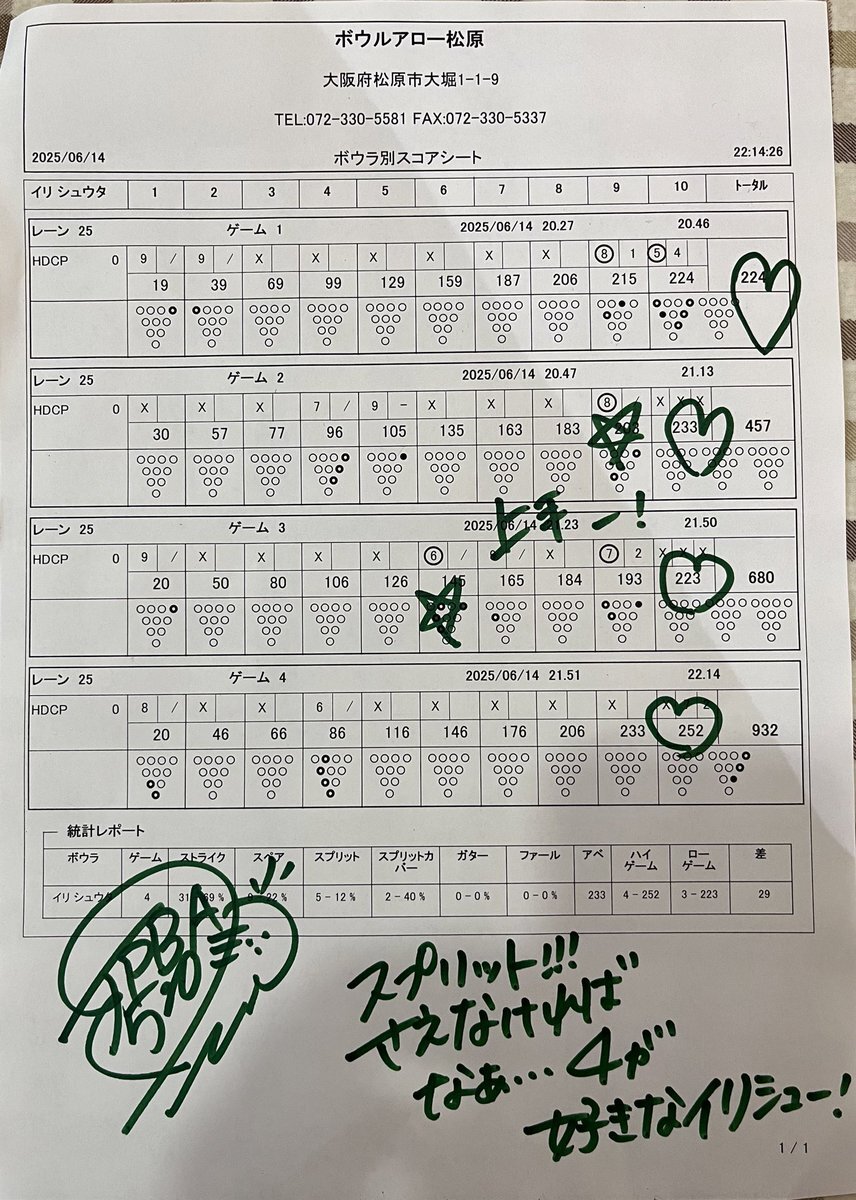 ボウルアロー松原
大阪府松原市大堀1-1-9
TEL:072-330-5581 FAX:072-330-5337
2025/06/14 ボウラ別スコアシート 22:14:26
イリ シュウタ 1 2 3 4 5 6 7 8 9 10 トータル
レーン 25 ゲーム 1 2025/06/14 20.27 20.46
HDCP 0 9 / 9 / X X X X X X ⑧ 1 ⑤ 4
19 39 69 99 129 159 187 206 215 224 224
レーン 25 ゲーム 2 2025/06/14 20.47 21.13
HDCP 0 X X X 7 / 9 - X X X ⑧ / X X X
30 57 77 96 105 135 163 183 203 233 457
上手ー!
レーン 25 ゲーム 3 2025/06/14 21.23 21.50
HDCP 0 9 / X X X X ⑥ / / X ⑦ 2 X X X
20 50 80 106 126 145 165 184 193 223 680
レーン 25 ゲーム 4 2025/06/14 21.51 22.14
HDCP 0 8 / X X 6 / X X X X X X 2
20 46 66 86 116 146 176 206 233 252 932
統計レポート
ボウラ ゲーム ストライク スペア スプリット スプリットカバー ガター ファール アベ ハイゲーム ローゲーム 差
イリ シュウタ 4 5-12 % 2-40 % 0-0 % 0-0 % 233 4-252 3-223 29
JPBA
スプリット!!!
さえなければ
なぁ… 4が
好きなイリシュー!
1 / 1